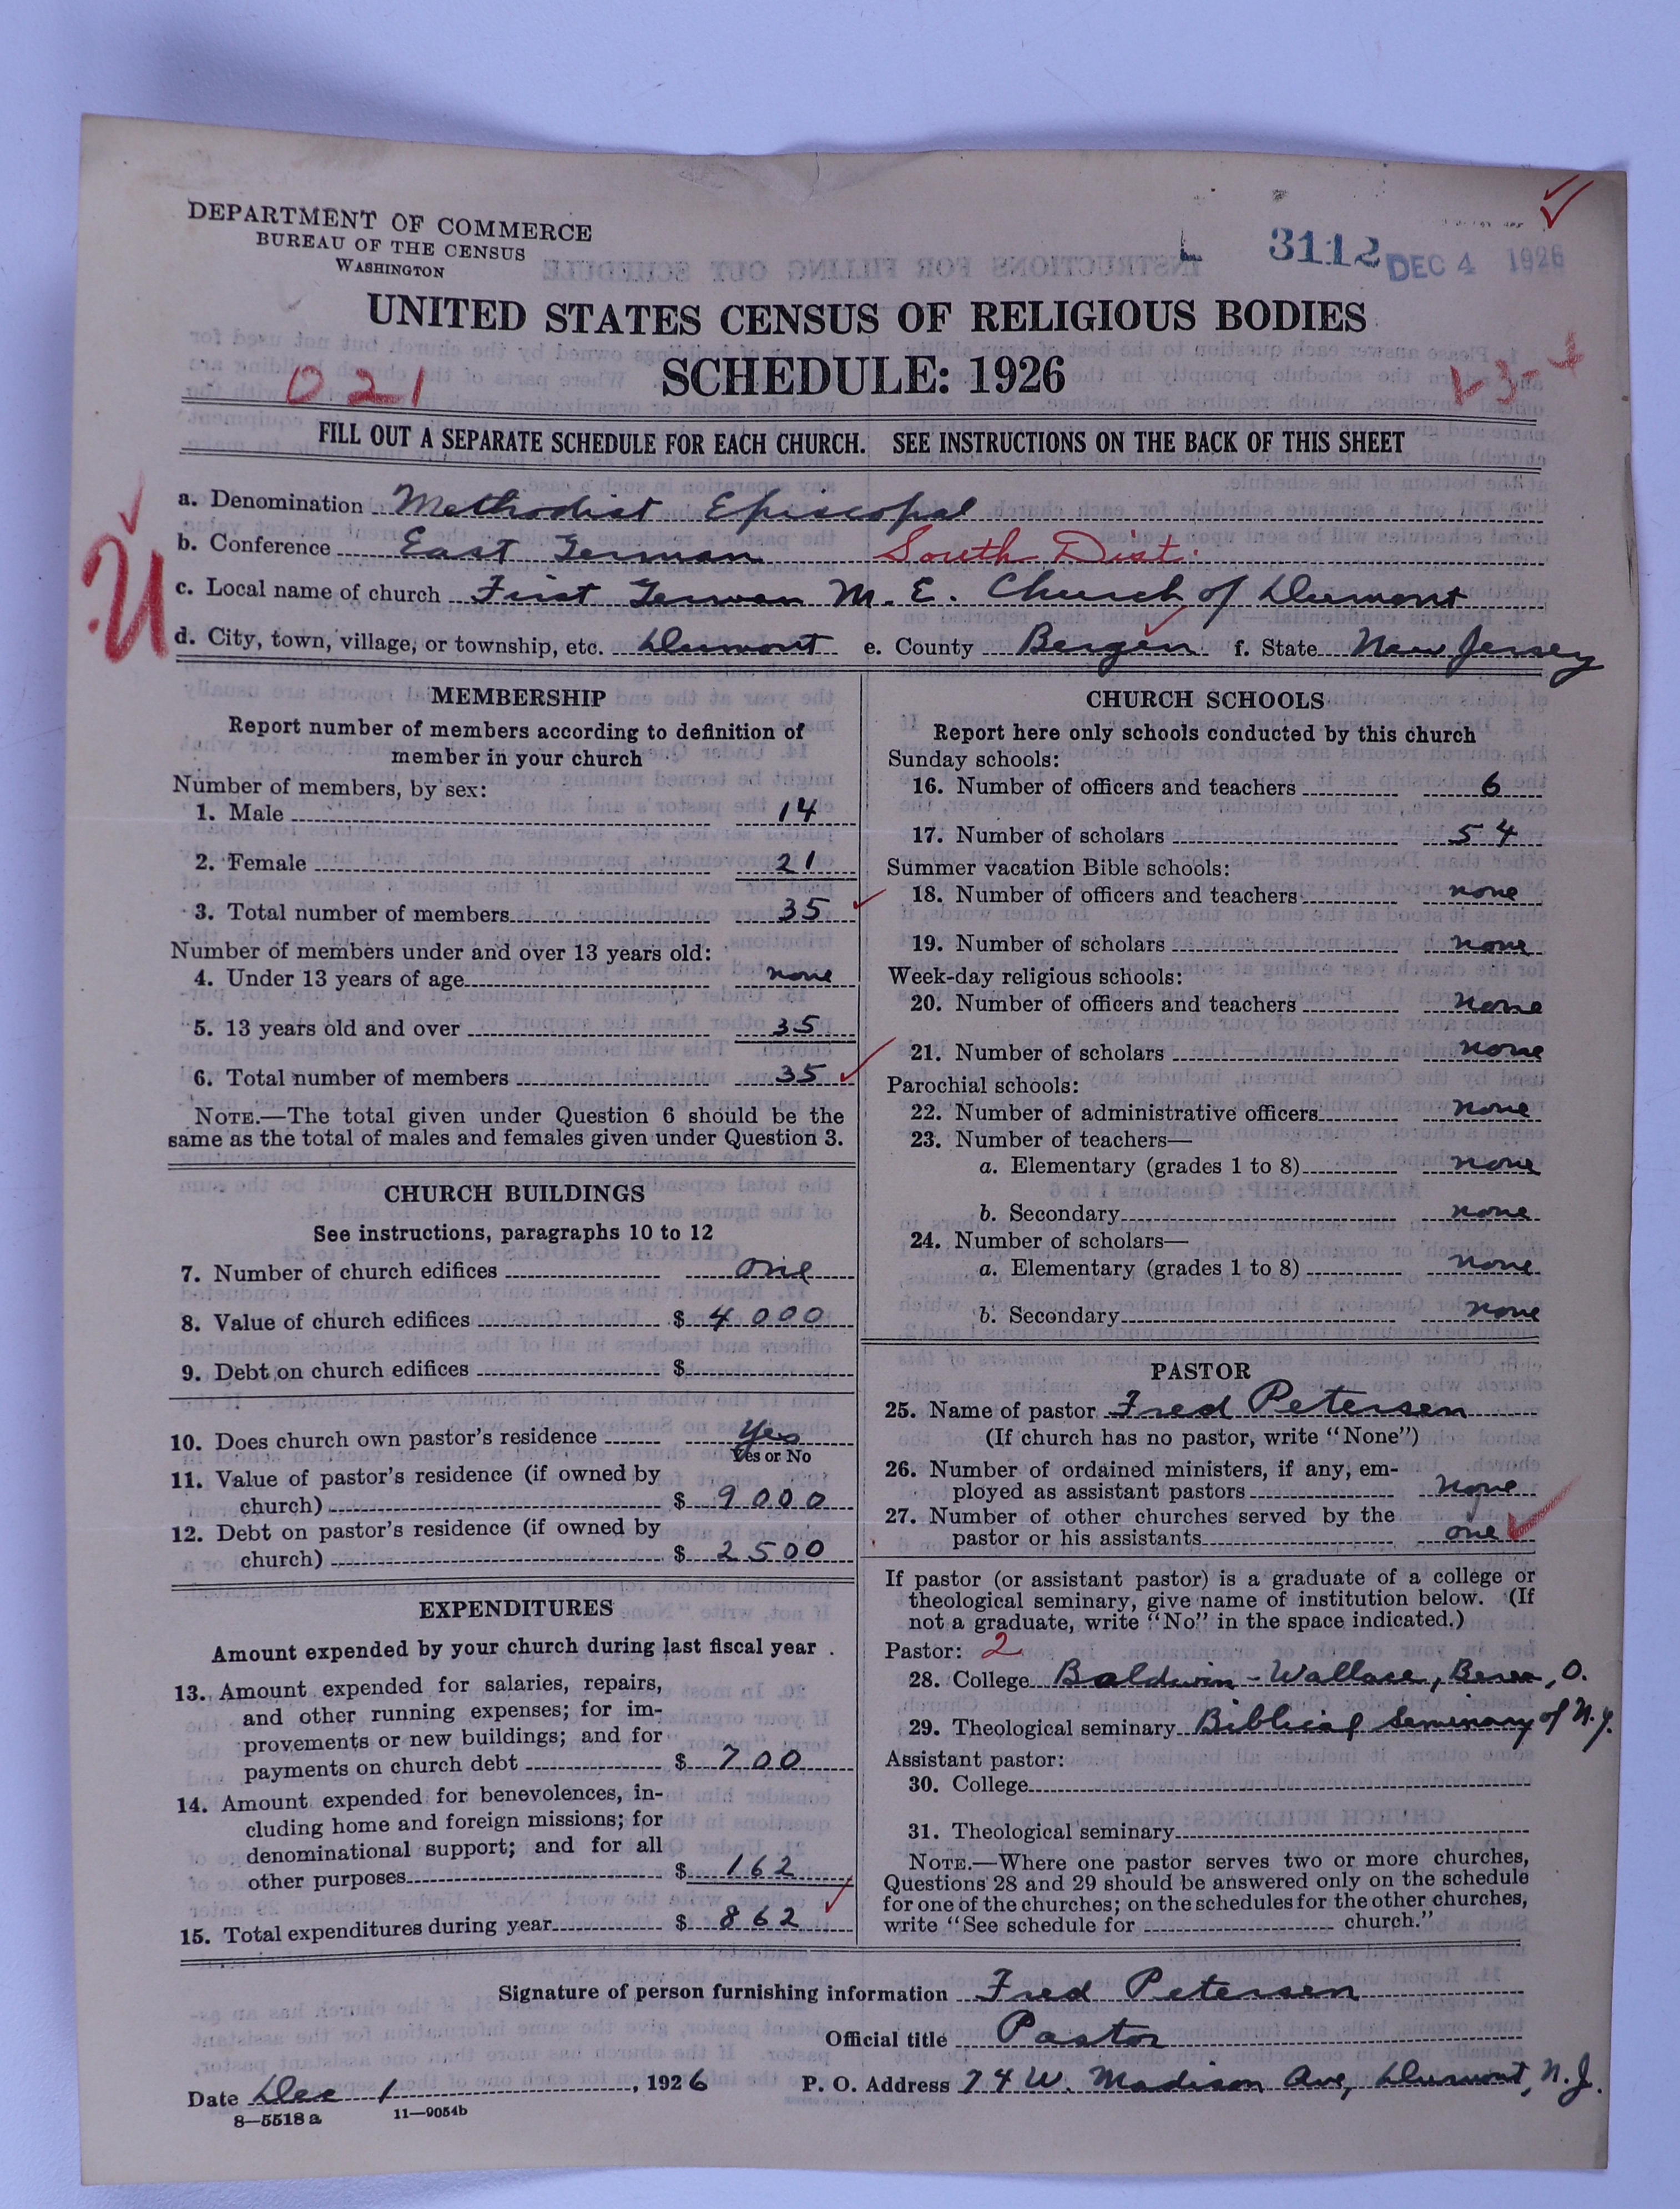 DEPARTMENT OF COMMERCE
BUREAU OF THE CENSUS
WASHINGTON
L 3112 DEC 4 1926
UNITED STATES CENSUS OF RELIGIOUS BODIES
SCHEDULE: 1926
021
1-3-4
FILL OUT A SEPARATE SCHEDULE FOR EACH CHURCH. SEE INSTRUCTIONS ON THE BACK OF THIS SHEET
a. Denomination Methodist Episcopal
b. Conference East German South Dist.
c. Local name of church First German M. E. Church of Dumont
d. City, town, village, or township, etc. Dumont e. County Bergen f. State New Jersey
MEMBERSHIP
Report number of members according to definition of
member in your church
Number of members, by sex:
1. Male 14
2. Female 21
3. Total number of members 35
Number of members under and over 13 years old:
4. Under 13 years of age none
5. 13 years old and over 35
6. Total number of members 35
NOTE.—The total given under Question 6 should be the
same as the total of males and females given under Question 3.
CHURCH BUILDINGS
See instructions, paragraphs 10 to 12
7. Number of church edifices one
8. Value of church edifices $ 4000
9. Debt on church edifices $
10. Does church own pastor's residence Yes
Yes or No
11. Value of pastor's residence (if owned by
church) $ 9000
12. Debt on pastor's residence (if owned by
church) $ 2500
EXPENDITURES
Amount expended by your church during last fiscal year
13. Amount expended for salaries, repairs,
and other running expenses; for im-
provements or new buildings; and for
payments on church debt $ 700
14. Amount expended for benevolences, in-
cluding home and foreign missions; for
denominational support; and for all
other purposes $ 162
15. Total expenditures during year $ 862
CHURCH SCHOOLS
Report here only schools conducted by this church
Sunday schools:
16. Number of officers and teachers 6
17. Number of scholars 54
Summer vacation Bible schools:
18. Number of officers and teachers none
19. Number of scholars none
Week-day religious schools:
20. Number of officers and teachers none
21. Number of scholars none
Parochial schools:
22. Number of administrative officers none
23. Number of teachers—
a. Elementary (grades 1 to 8) none
b. Secondary none
24. Number of scholars—
a. Elementary (grades 1 to 8) none
b. Secondary none
PASTOR
25. Name of pastor Fred Petersen
(If church has no pastor, write "None")
26. Number of ordained ministers, if any, em-
ployed as assistant pastors none
27. Number of other churches served by the
pastor or his assistants one
If pastor (or assistant pastor) is a graduate of a college or
theological seminary, give name of institution below. (If
not a graduate, write "No" in the space indicated.)
Pastor: 2
28. College Baldwin-Wallace, Berea, O.
29. Theological seminary Biblical Seminary of N.Y.
Assistant pastor:
30. College
31. Theological seminary
NOTE.—Where one pastor serves two or more churches,
Questions 28 and 29 should be answered only on the schedule
for one of the churches; on the schedules for the other churches,
write "See schedule for church."
Signature of person furnishing information Fred Petersen
Official title Pastor
Date Dec 1, 1926 P. O. Address 74 W. Madison Ave, Dumont, N.J.
8—5518 a 11—9054b